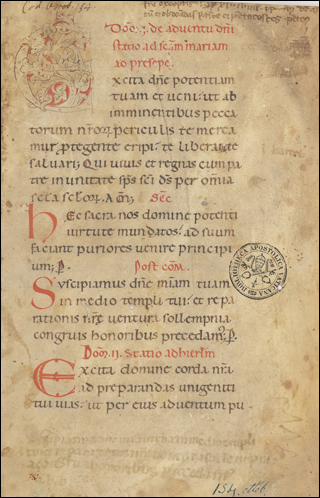 Cod. Ottob. 154
Dom̄. I. de aduentu dn̄i
Statio ad scām mariam
ao presepe.
Excita dn̄e potentiam
tuam et ueni: ut ab
imminentibus pecca
torum nr̄orum periculis te merea
mur ptegente eripi: te liberante
saluari; Qui uiuis et regnas cum pa
tre in unitate sp̄s sc̄i ds̄ per om̄ia
secula sc̄lor̄. Am̄; Sec̄
Hec sacra nos domine potenti
uirtute mundatos: ad suum
faciant puriores uenire principi
um; P. Post com̄.
Suscipiamus dn̄e miam tuam
in medio templi tui: et repa
rationis nr̄e uentura sollempnia
congruis honoribus precedam; P.
Dom̄. II. Statio ad hierlm̄
Excita domine corda nr̄a
ad preparandas unigeniti
tui uias: ut per eius aduentum pu
BIBLIOTHECA APOSTOLICA VATICANA
154. Ottob.